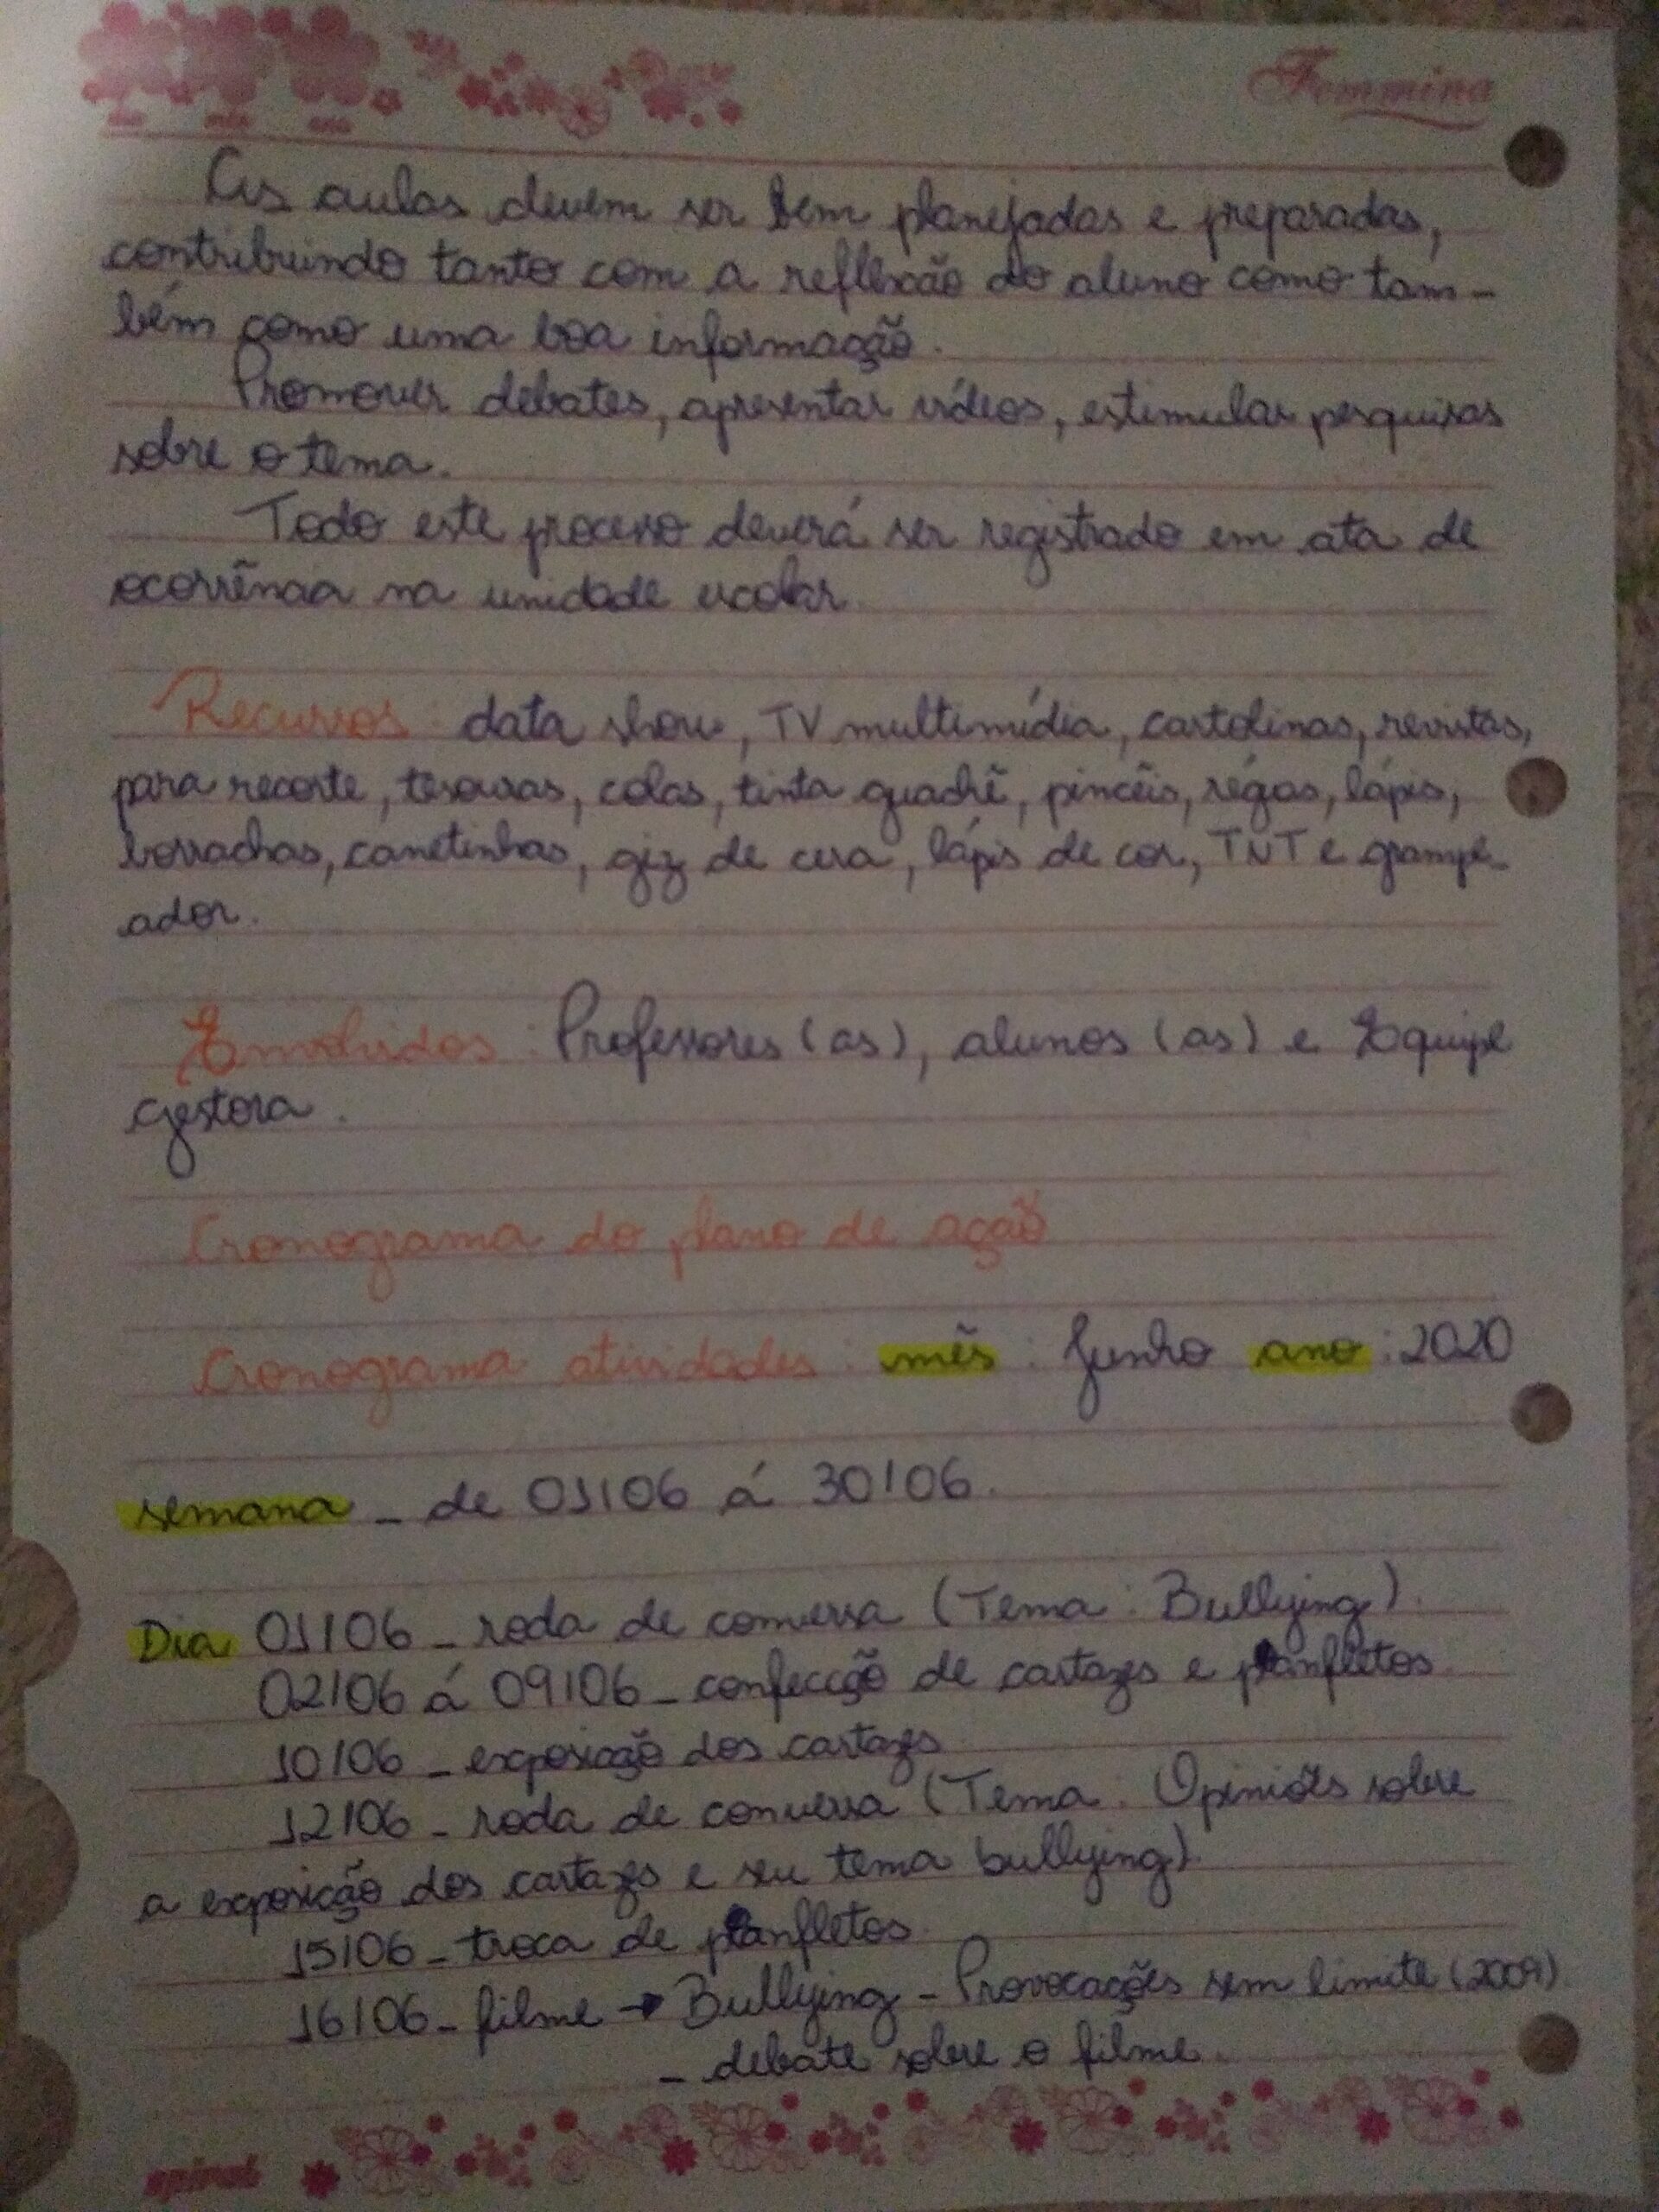 Femmina
dia mês ano
As aulas devem ser bem planejadas e preparadas,
contribuindo tanto com a reflexão do aluno como tam-
bém como uma boa informação.
Promover debates, apresentar vídeos, estimular pesquisas
sobre o tema.
Todo este processo deverá ser registrado em ata de
ocorrência na unidade escolar.
Recursos: data show, TV multimídia, cartolinas, revistas,
para recorte, tesouras, colas, tinta guachê, pincéis, régas, lápis,
borrachas, canetinhas, giz de cera, lápis de cor, TNT e grampe
ador.
Envolvidos: Professores (as), alunos (as) e Equipe
Gestora.
Cronograma do plano de ação
Cronograma atividades: mês: Junho ano: 2020
semana - de 01/06 á 30/06.
Dia 01/06 - roda de conversa (Tema: Bullying).
02/06 á 09/06 - confecção de cartazes e panfletos
10/06 - exposição dos cartazes
12/06 - roda de conversa (Tema: Opiniões sobre
a exposição dos cartazes e seu tema bullying).
15/06 - troca de panfletos.
16/06 - filme → Bullying - Provocações sem limite (2009)
- debate sobre o filme.
spiral